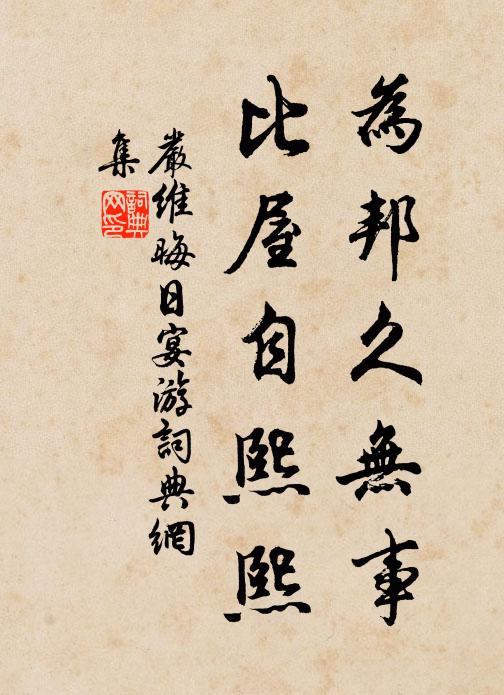 為邦久無事
比屋自熙熙
嚴維晦日宴游詞典網
集
詞典
网印